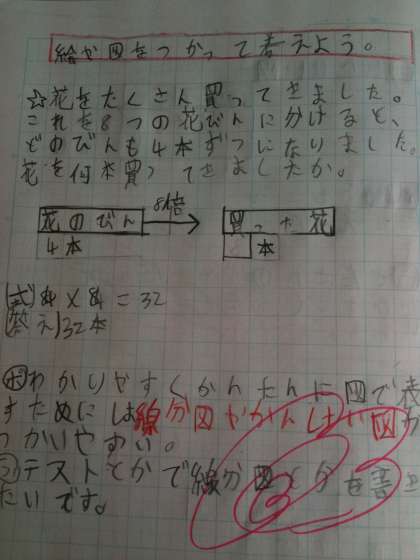 絵や図をつかって考えよう。
☆花をたくさん買ってきました。
これを8つの花びんに分けると、
どのびんも4本ずつになりました。
花を何本買ってきましたか。
8倍
花のびん
買った花
4本
本
(式)4×8=32
(答え)32本
ポわかりやすくかんたんに図で表
すためには線分図やかんけい図が
つかいやすい。
テストとかで線分図とかを書き
たいです。